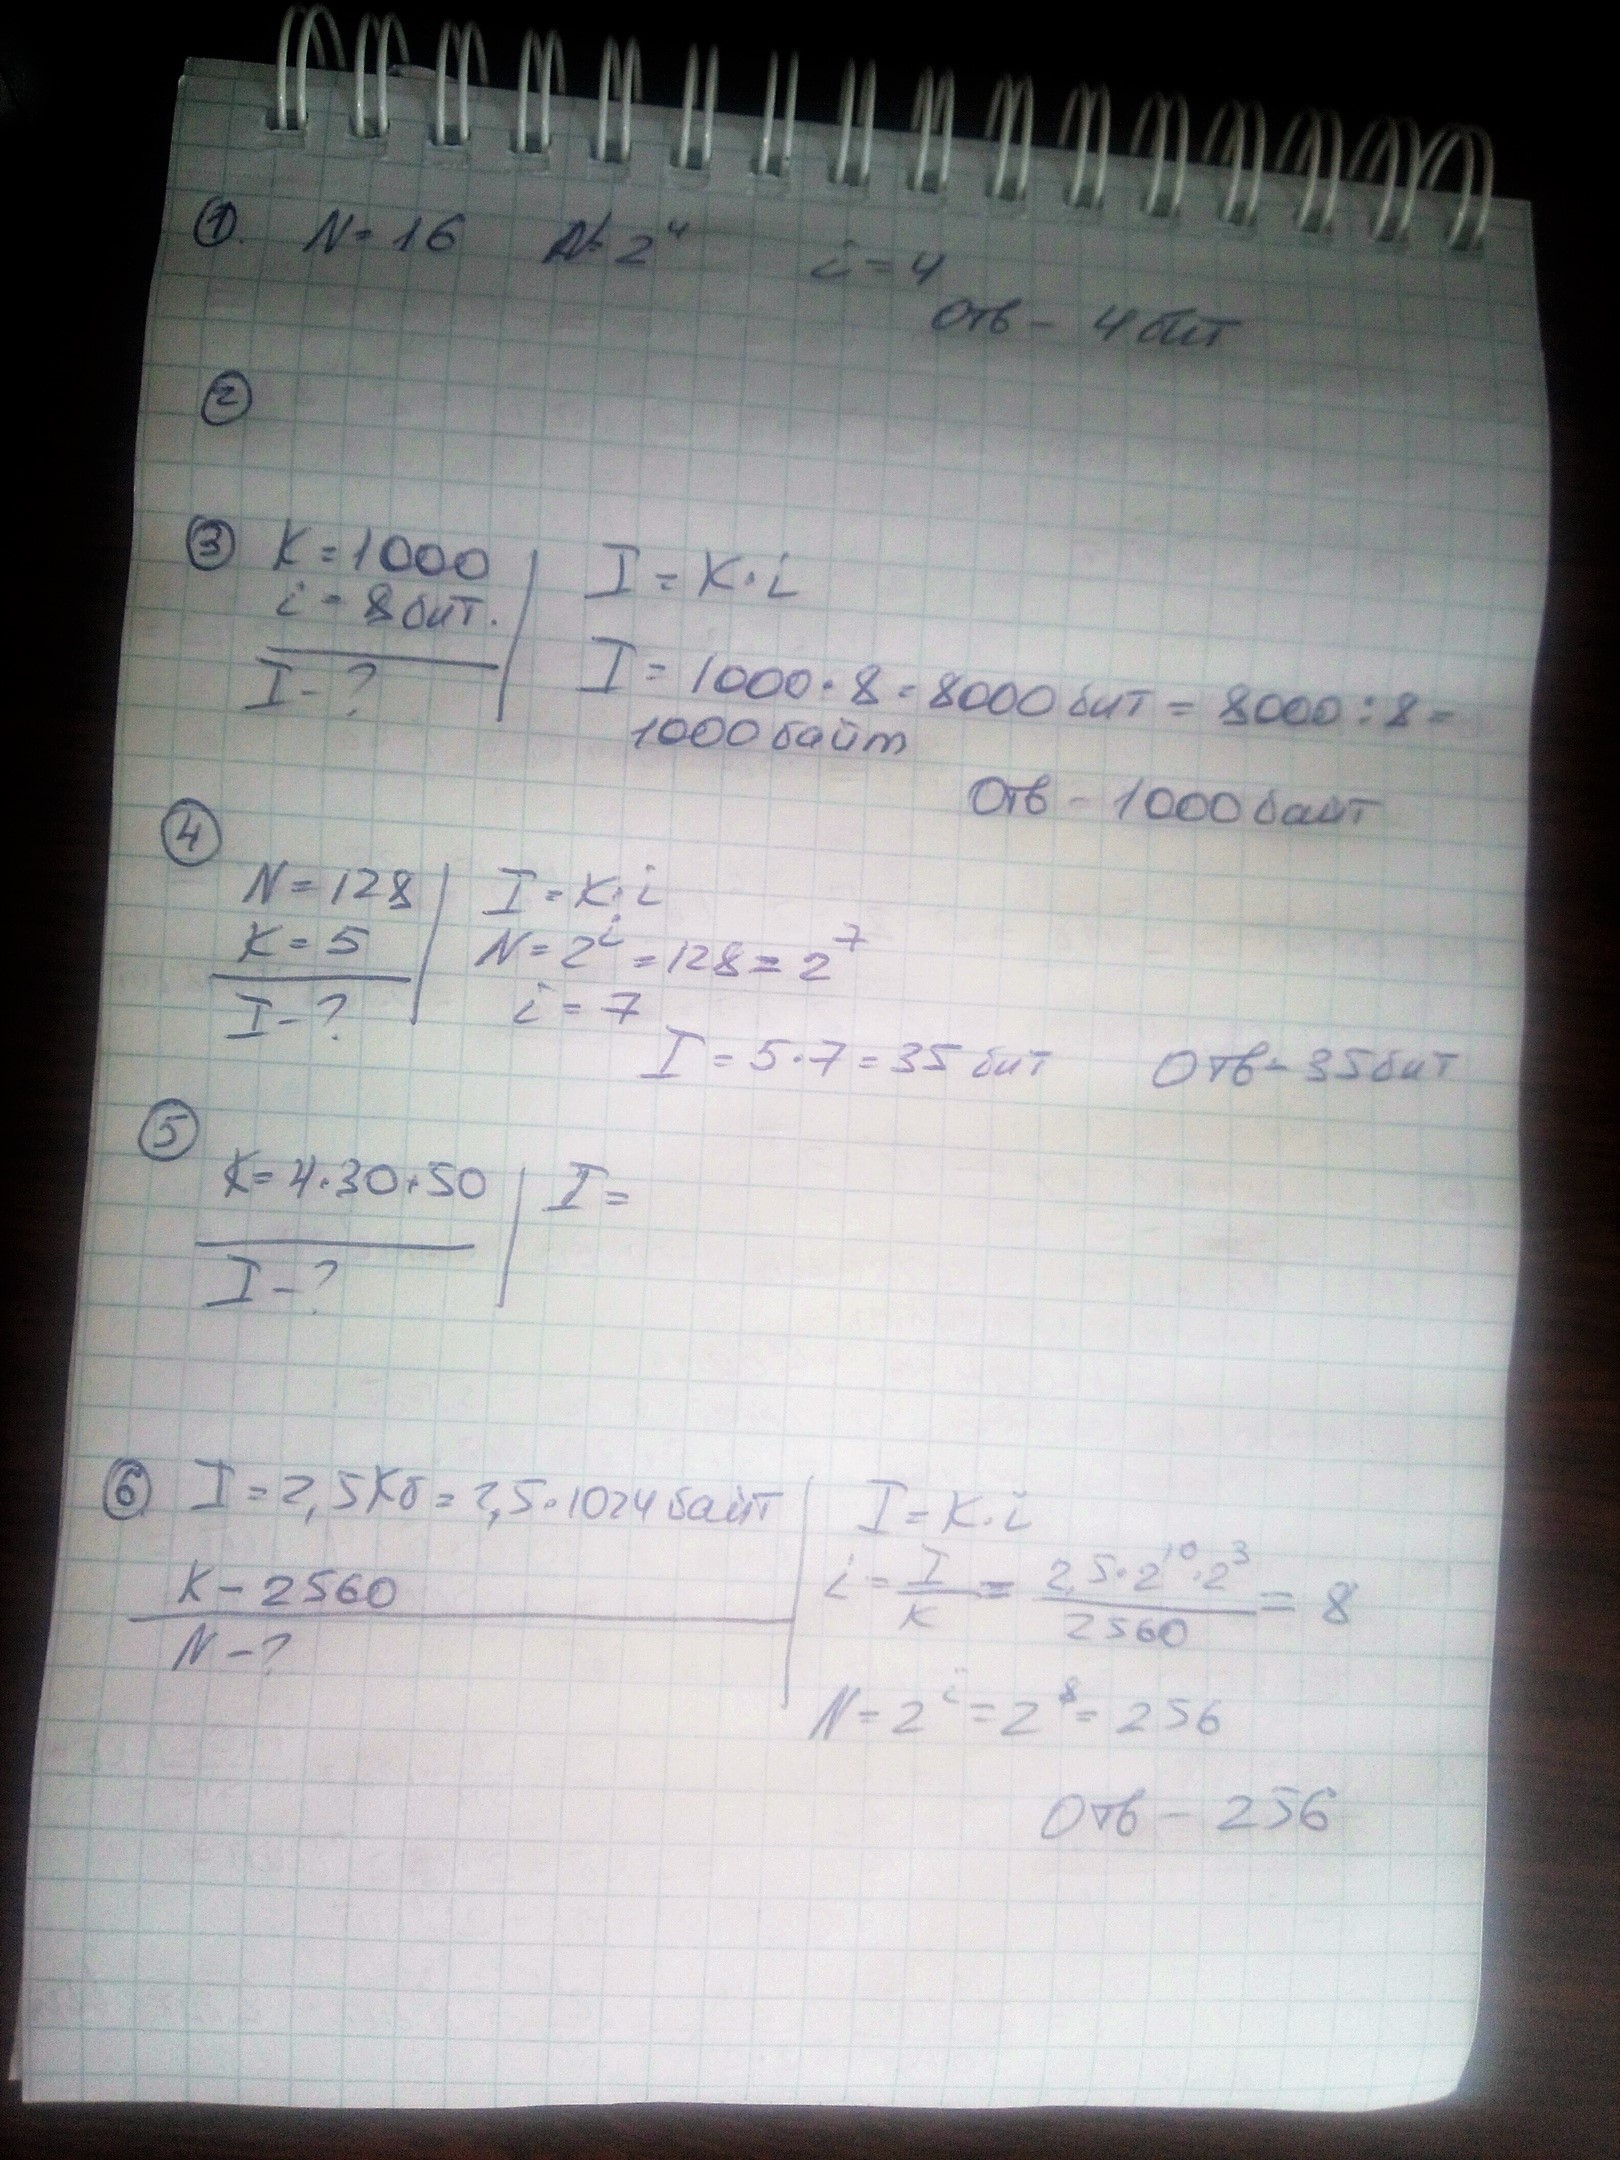 ① N=16 N=2⁴ i=4
Отв - 4 бит
②
③ K=1000
i = 8 бит.
I-?
I = K·i
I = 1000·8=8000 бит = 8000:8=
1000 байт
Отв - 1000 байт
④
N=128
K=5
I-?
I=K·i
N=2ⁱ=128=2⁷
i=7
I=5·7=35 бит Отв-35 бит
⑤
K=4·30·50
I-?
I=
⑥ I=2,5Кб=2,5·1024 байт
K-2560
N-?
I=K·i
i = I/K = 2,5·2¹⁰·2³/2560 = 8
N=2ⁱ=2⁸=256
Отв - 256